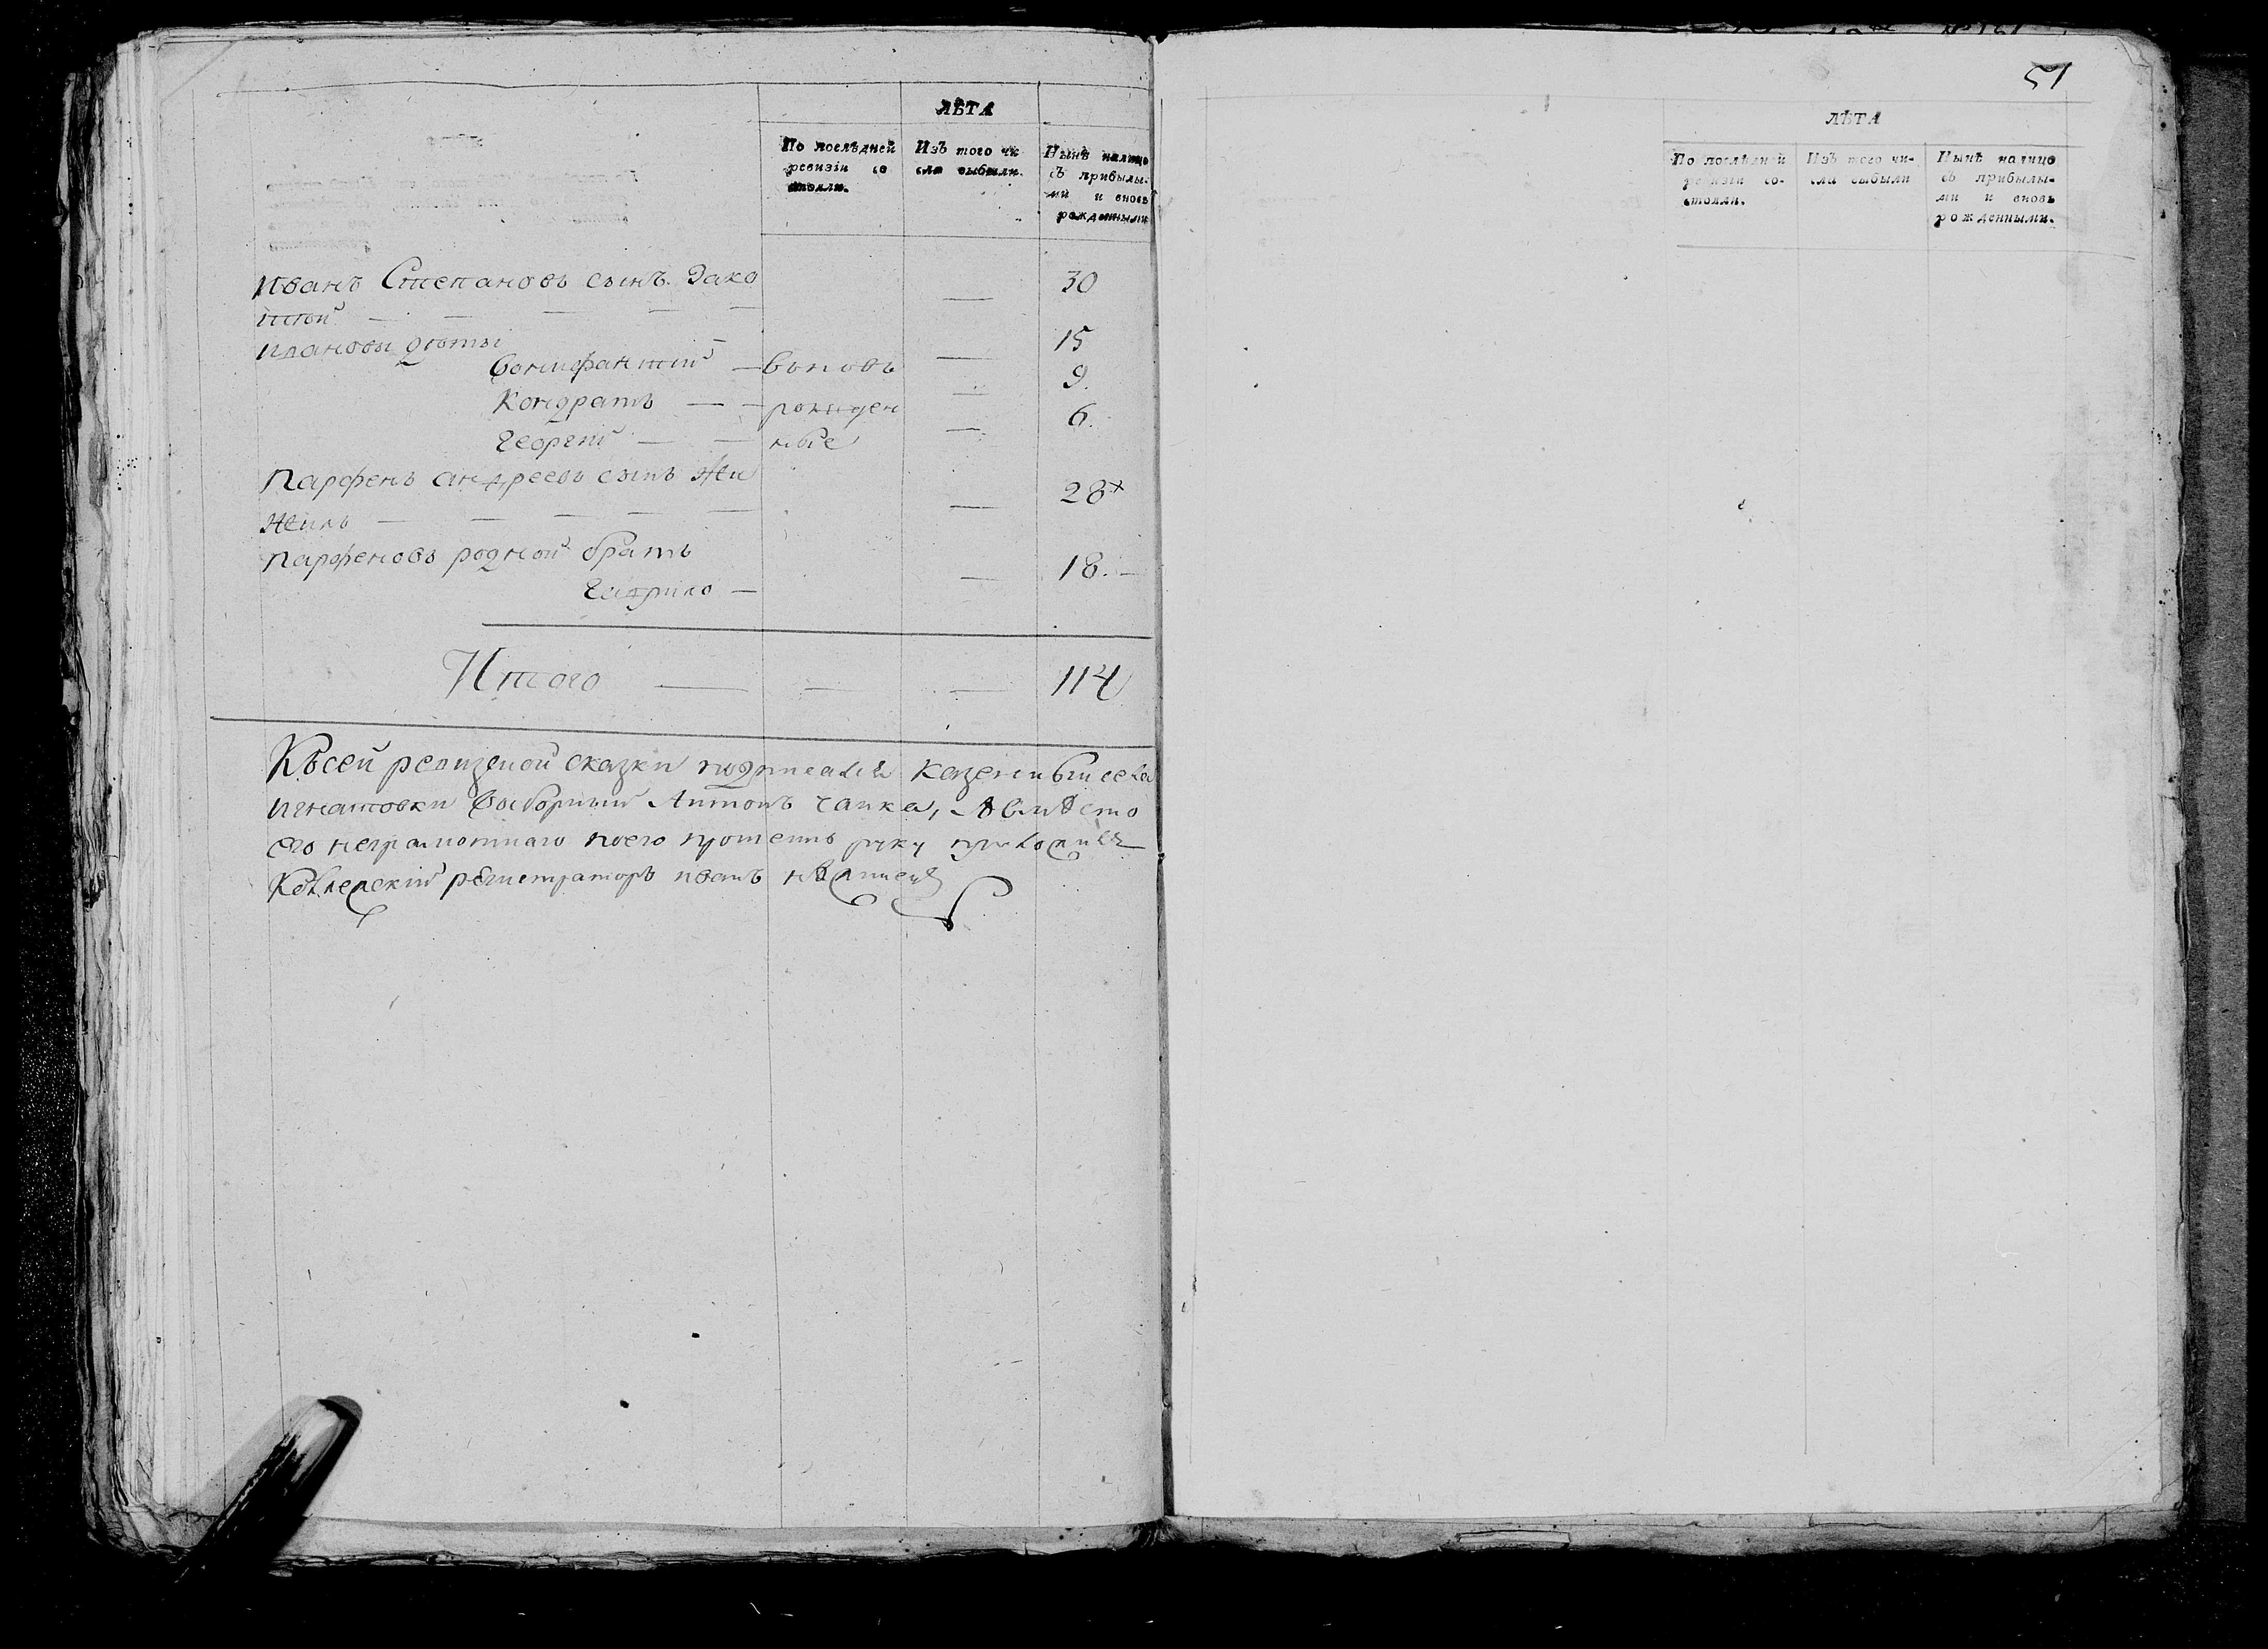 ЛѢТА
По послѣдней ревизіи со стояли.
Изъ того чи сла выбыли.
Нынѣ налицо съ прибылы- ми и вновь рожденными
Иванъ Степановъ сынъ Зако 30
тной — — — — —
Ивановы дѣти 15
Бонифантий — вьновь 9.
Кондратъ — — рожден 6.
Георгий — — ные
Парфенъ андреевъ сынъ Жи 28
жинъ — — — — —
Парфеновъ родной братъ 18.
Гаврило —
Итого — — — 114
Късей ревизской сказки подписался казенны села
игнатовки выборный Антонъ чапка, Авмѣсто
его неграмотнаго поего прошению руку приложилъ
Колежский регистраторъ иванъ
51
ЛѢТА
По послѣдней ревизіи со- стояли.
Изъ того чи- сла выбыли
Нынѣ налицо съ прибылы- ми и вновь рожденными.